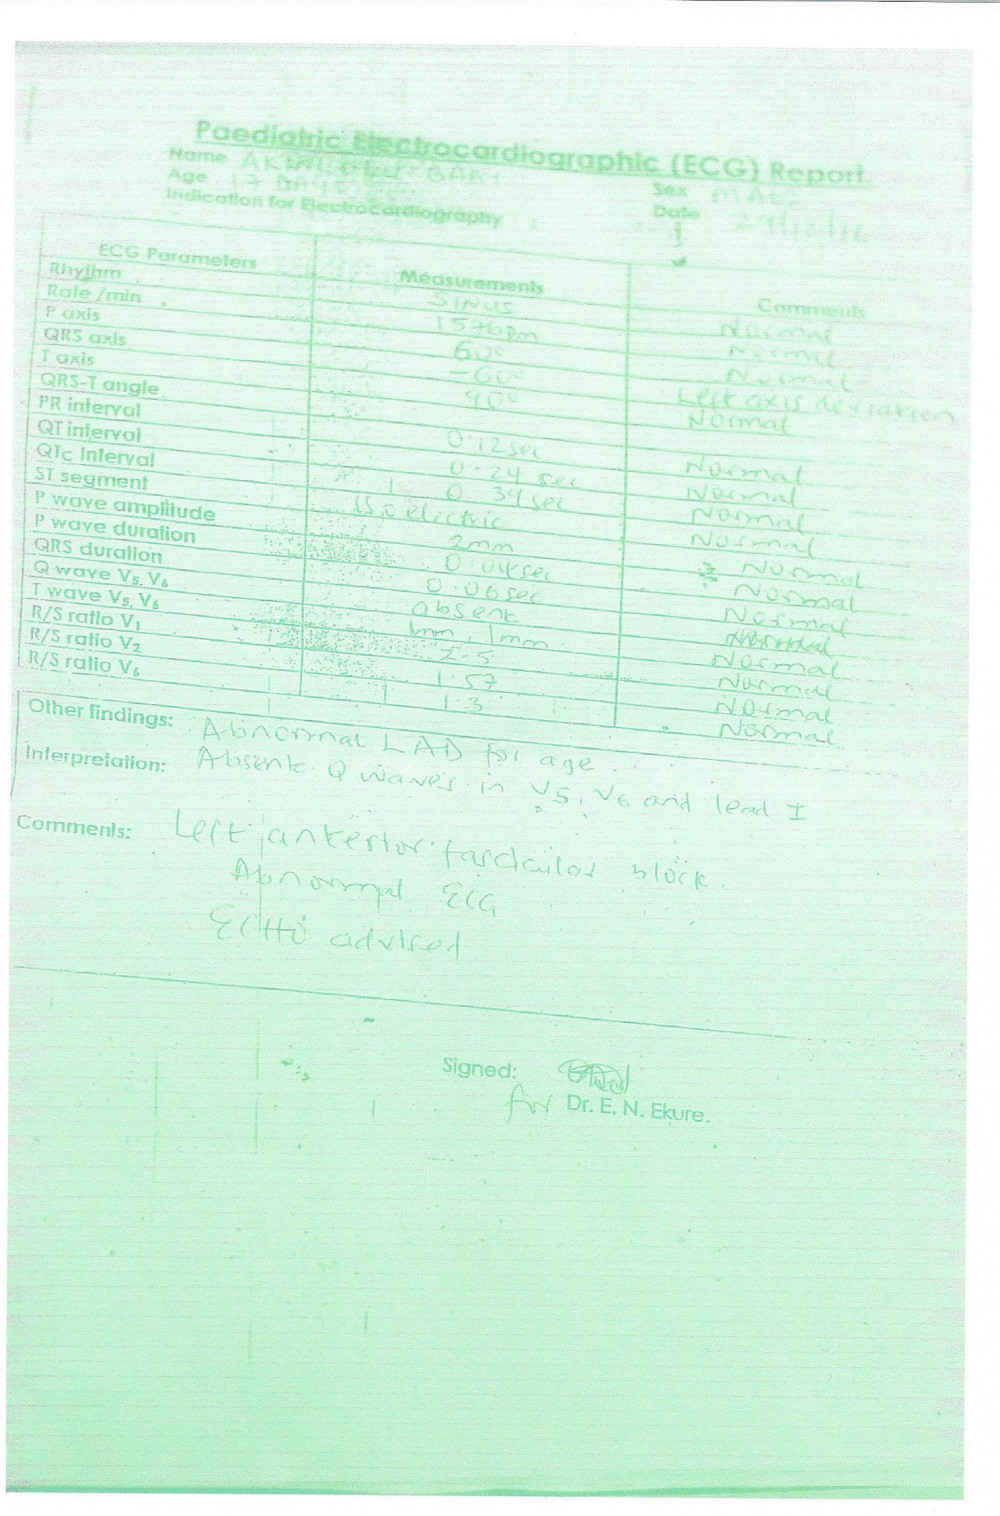 Paediatric Electrocardiographic (ECG) Report
Name BABY Sex MALE
Age 17 DAYS Date
Indication for Electrocardiography
ECG Parameters Measurements Comments
Rhythm SINUS Normal
Rate /min 157bpm Normal
P axis 60° Normal
QRS axis -60° Left axis deviation
T axis 90° Normal
QRS-T angle
PR interval 0.12sec Normal
QT interval 0.24 sec Normal
QTc Interval 0.34sec Normal
ST segment Isoelectric Normal
P wave amplitude 2mm Normal
P wave duration 0.04sec Normal
QRS duration 0.06sec Normal
Q wave V5, V6 absent
T wave V5, V6 1mm, 1mm Normal
R/S ratio V1 2.5 Normal
R/S ratio V2 1.57 Normal
R/S ratio V6 1.3 Normal
Other findings: Abnormal LAD for age
Interpretation: Absent Q waves in V5, V6 and lead I
Comments: Left block.
Abnormal ECG
ECHO advised
Signed:
for Dr. E. N. Ekure.